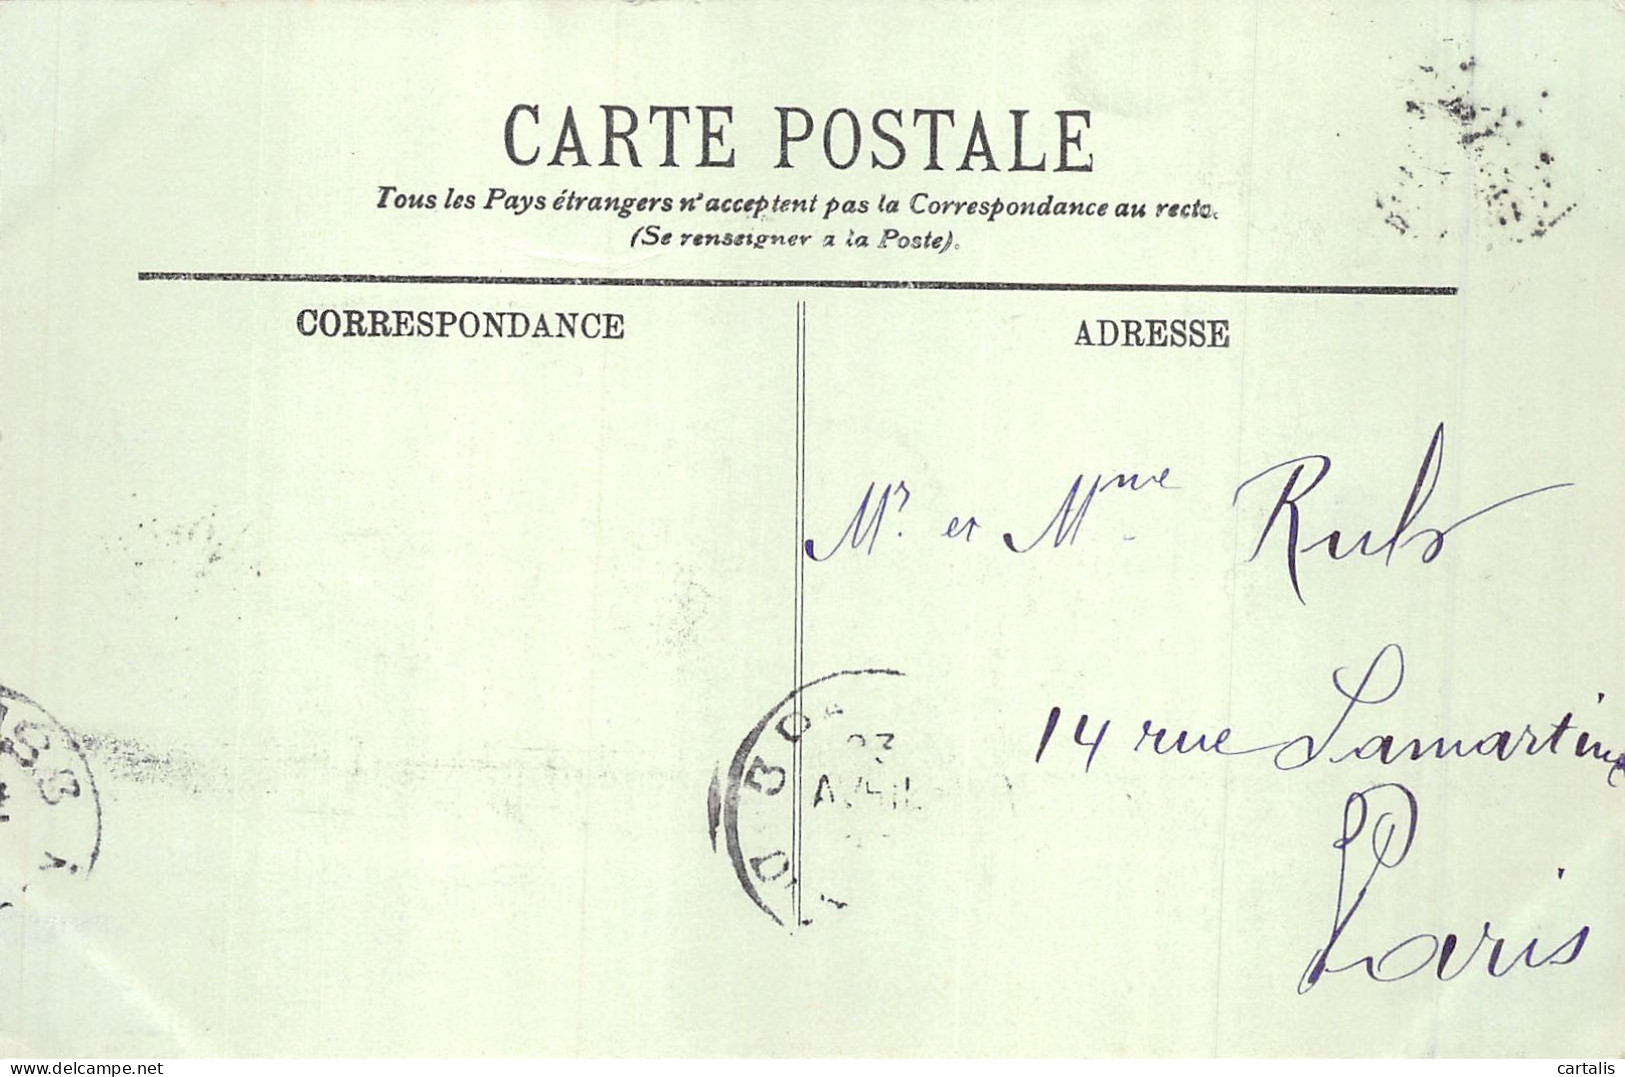 CARTE POSTALE
Tous les Pays étrangers n'acceptent pas la Correspondance au recto.
(Se renseigner a la Poste).
CORRESPONDANCE
ADRESSE
Mr. et Mme
14 rue Lamartine
Paris
23
AVRIL
delcampe.net
cartalis